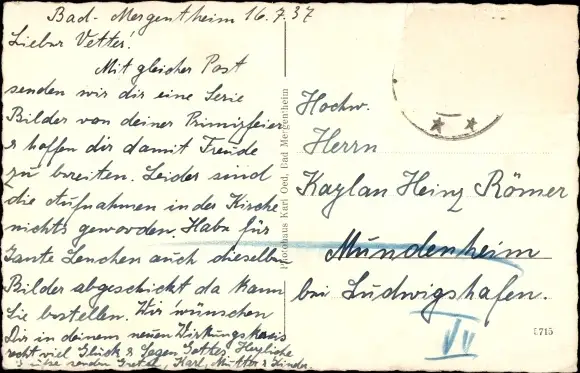 Bad-Mergentheim 16.7.37
Lieber Vetter!
Mit gleicher Post
senden wir dir eine Serie
Bilder von deiner Primizfeier
& hoffen dir damit Freude
zu bereiten. Leider sind
die Aufnahmen in der Kirche
nichts geworden. Habe für
Tante Lenchen auch dieselben
Bilder abgeschickt da kann
sie bestellen. Wir wünschen
Dir in deinem neuen Wirkungskreis
recht viel Glück & Segen Gottes. Herzliche
Grüße senden Gretel, Karl, Mutter & Kinder.
Photohaus Karl Oed, Bad Mergentheim
Hochw.
Herrn
Kaplan Heinz Römer
Mundenheim
bei Ludwigshafen.
L715